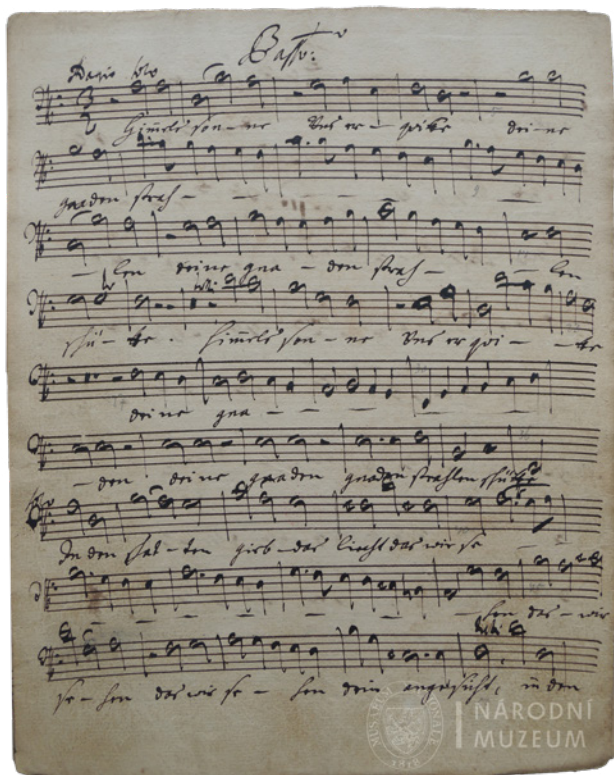 Basso:
Adagio solo
Himels son-ne Uns er-quike dei-ne
gnaden strah-
-len deine gna-den strah- -len
shü-ke. Himels son-ne Uns er qui- -ke
deine gna-
-den deine gnaden gnaden strahlen
In den giebdas liecht das wir se
-hen das-wir
se-hen das wir se-hen dein angesicht, in den
NÁRODNÍ
MUZEUM